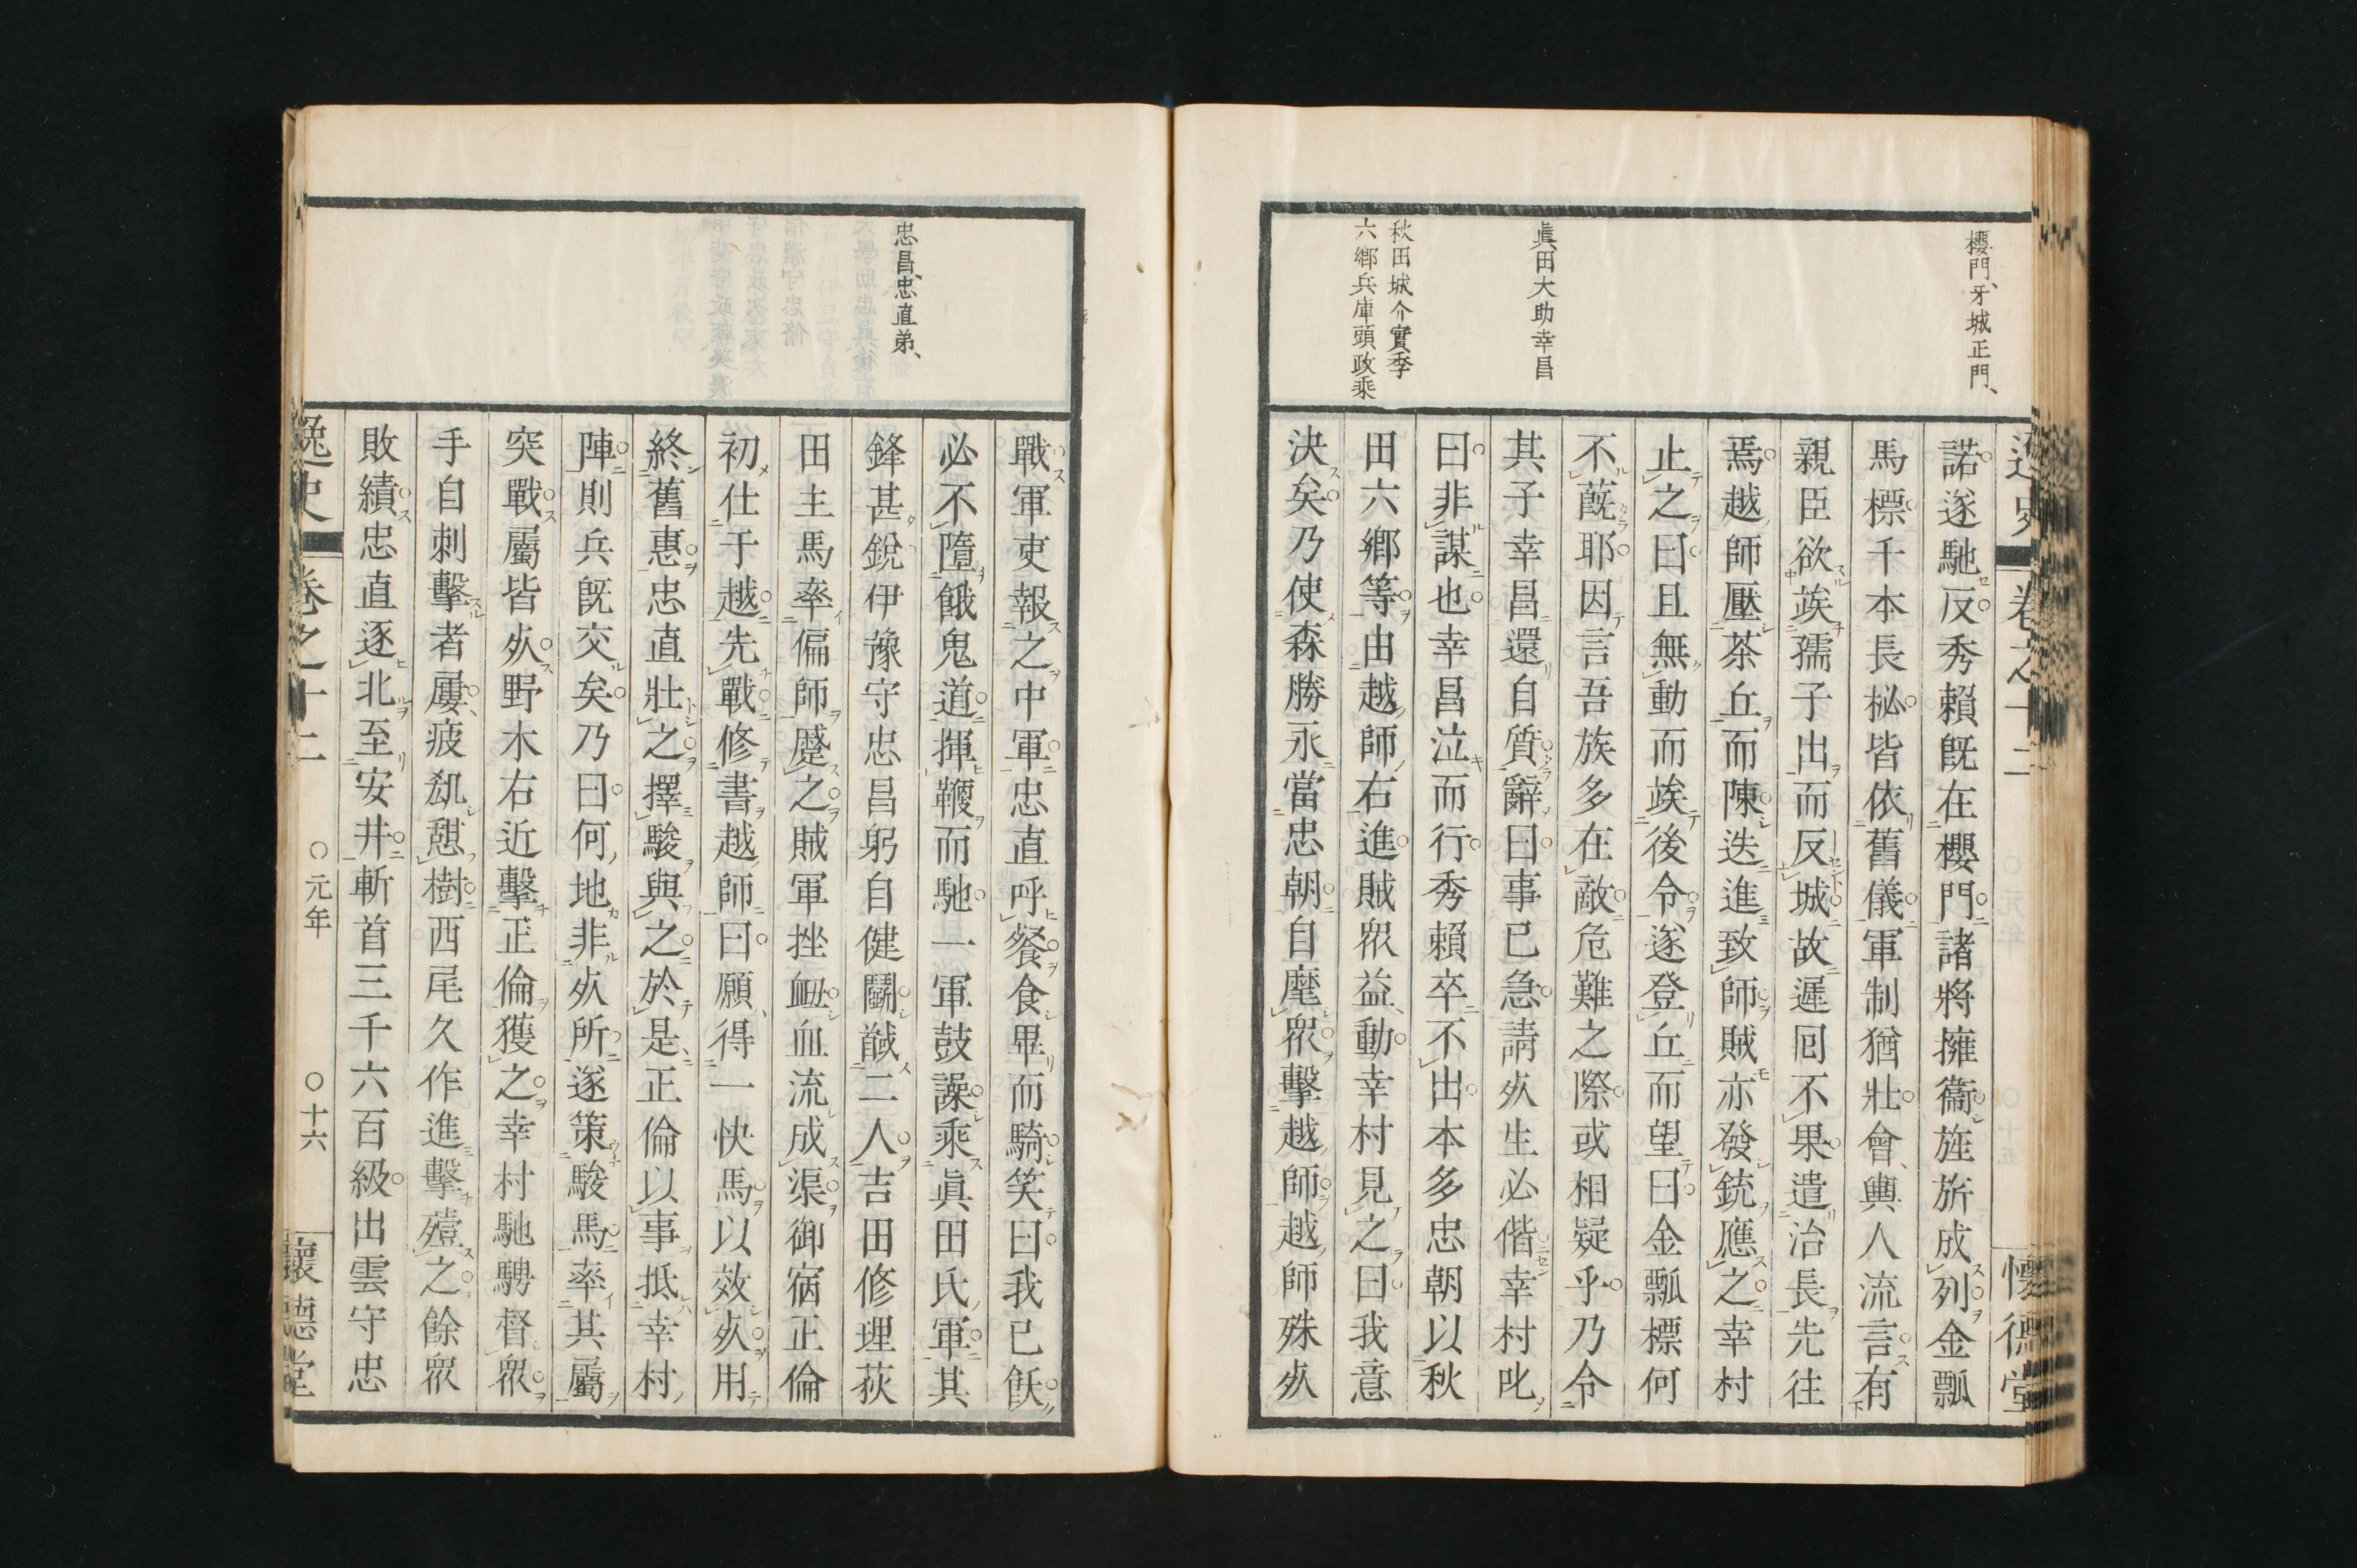 逸史
卷之十二
懷德堂
櫻門、牙城正門、
眞田大助幸昌
秋田城介實季
六鄉兵庫頭政乘
諾遂馳反秀賴旣在櫻門諸將擁衞旌旂成列金瓢
馬標千本長柲皆依舊儀軍制猶壯會輿人流言有
親臣欲竢孺子出而反城故遲囘不果遣治長先往
焉越師壓茶丘而陳迭進致師賊亦發銃應之幸村
止之曰且無動而竢後令遂登丘而望曰金瓢標何
不蔇耶因言吾族多在敵危難之際或相疑乎乃令
其子幸昌還自質辭曰事已急請㱙生必偕幸村叱
曰非謀也幸昌泣而行秀賴卒不出本多忠朝以秋
田六鄉等由越師右進賊衆益動幸村見之曰我意
決矣乃使森勝永當忠朝自麾衆擊越師越師殊㱙
忠昌、忠直弟、
戰軍吏報之中軍忠直呼餐食畢而騎笑曰我已飫
必不墮餓鬼道揮鞭而馳一軍鼓譟乘眞田氏軍其
鋒甚銳伊豫守忠昌躬自健鬭馘二人吉田修理荻
田主馬率偏師蹙之賊軍挫衂血流成渠御宿正倫
初仕于越先戰修書越師曰願得一快馬以效㱙用
終舊惠忠直壯之擇駿與之於是正倫以事抵幸村
陣則兵旣交矣乃曰何地非㱙所遂策駿馬率其屬
突戰屬皆㱙野木右近擊正倫獲之幸村馳騁督衆
手自刺擊者屢疲劜憇樹西尾久作進擊殪之餘衆
敗績忠直逐北至安井斬首三千六百級出雲守忠
逸史
卷之十二
○元年
○十六
懷德堂